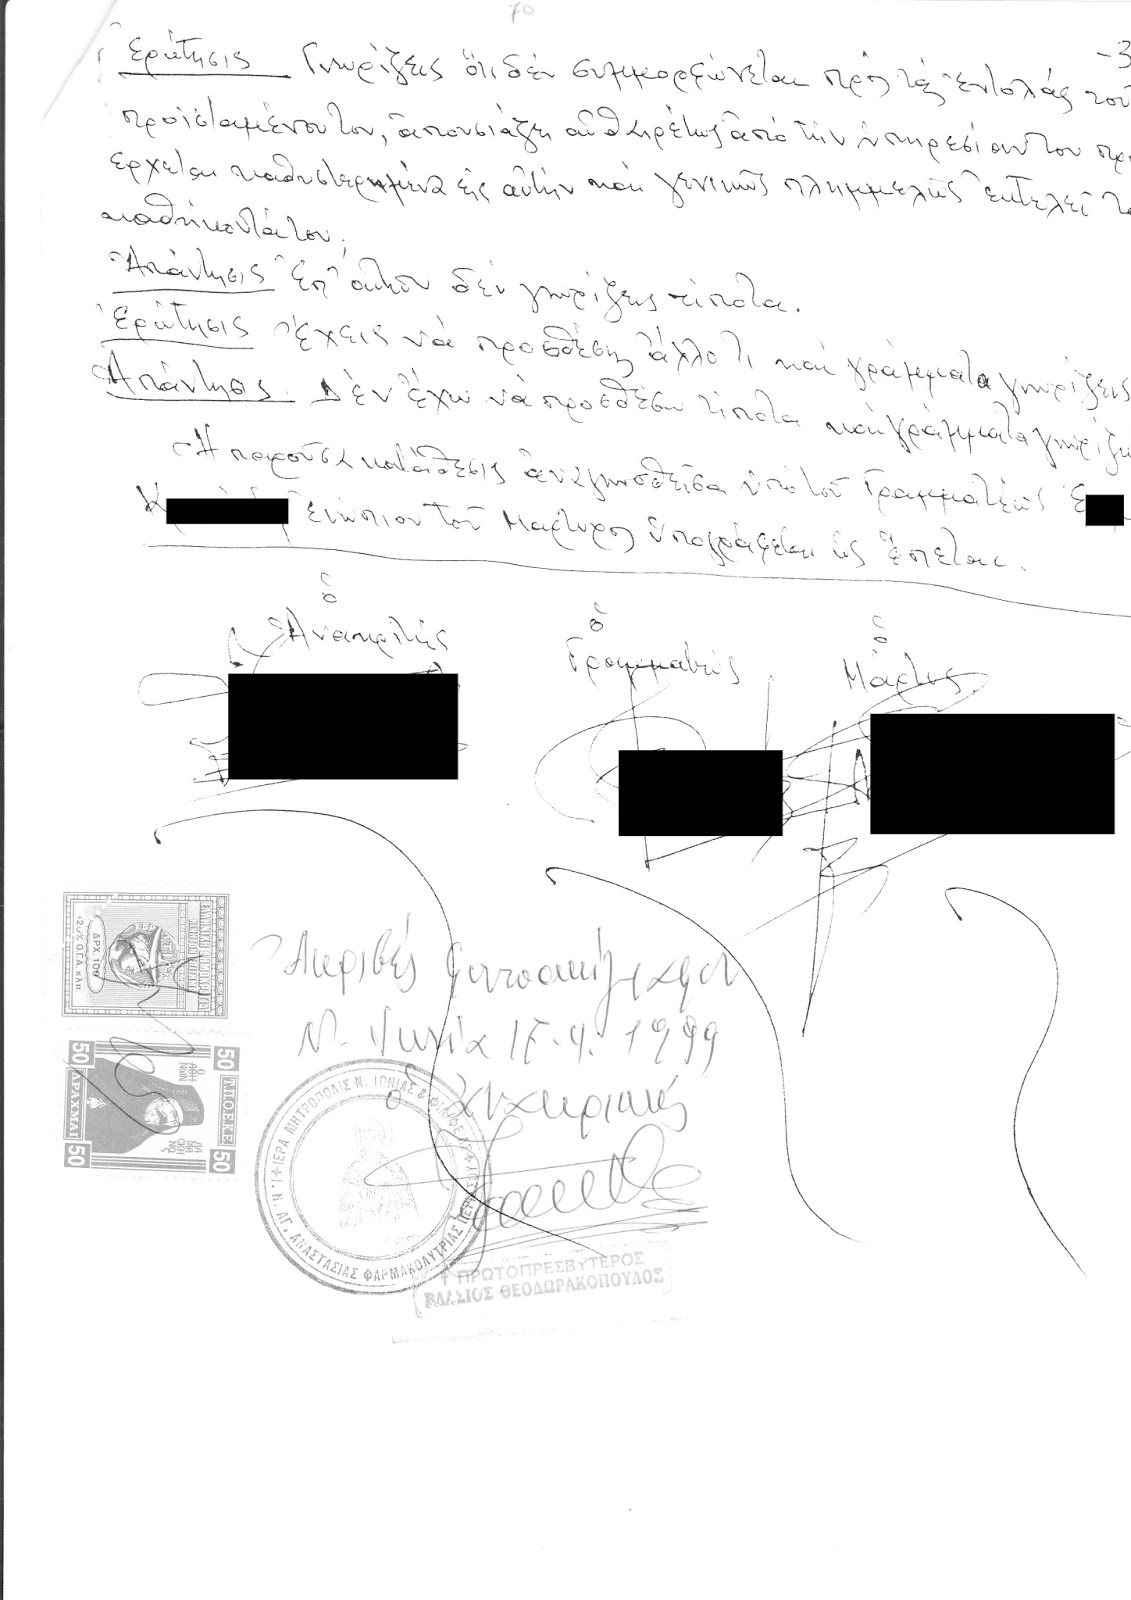 70
-3
Ἐρώτησις Γνωρίζεις ὅτι δέν συμμορφώνεται πρός τάς ἐντολάς τοῦ
προϊσταμένου του, ἀπουσιάζει αὐθαιρέτως ἀπό τήν ὑπηρεσίαν του
ἔρχεται καθυστερημένα εἰς αὐτήν καί γενικῶς πλημμελῶς ἐκτελεῖ
καθήκοντά του;
Ἀπάντησις Ἐπ' αὐτοῦ δέν γνωρίζεις τίποτα.
Ἐρώτησις Ἔχεις νά προσθέσῃς ἄλλο τι καί γράμματα γνωρίζεις
Ἀπάντησις. Δέν ἔχω νά προσθέσω τίποτα καί γράμματα γνωρίζω
Ἡ παροῦσα κατάθεσις ἀναγνωσθεῖσα ὑπό τοῦ Γραμματέως
ἐνώπιον τοῦ Μάρτυρος ὑπογράφεται ὡς ἕπεται.
ὁ ὁ ὁ
Ἀνακριτής Γραμματεύς Μάρτυς
Ἀκριβές φωτοαντίγραφον
Ν. Ἰωνία 17-9-1999
ΕΛΛΗΝΙΚΗ ΔΗΜΟΚΡΑΤΙΑ
ΔΡΧ.100
+20% Ο.Γ.Α. Κ.Λ.Π.
50 50
Τ.Π.Ο.Ε.Κ.Ε.
ΔΡΑΧΜΑΙ
50 50
ΙΕΡΑ ΜΗΤΡΟΠΟΛΙΣ Ν. ΙΩΝΙΑΣ &
Ι. Ν. ΑΓ. ΑΝΑΣΤΑΣΙΑΣ ΦΑΡΜΑΚΟΛΥΤΡΙΑΣ
† ΠΡΩΤΟΠΡΕΣΒΥΤΕΡΟΣ
ΒΛΑΣΙΟΣ ΘΕΟΔΩΡΑΚΟΠΟΥΛΟΣ